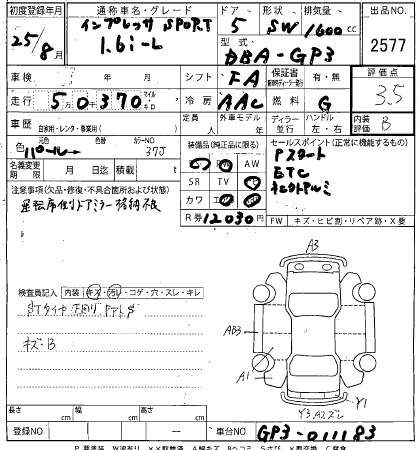 初度登録年月 通称車名・グレード ドア 形状 排気量 出品NO.
25/8月 インプレッサ SPORT 5 SW 1600cc 2577
1.6i-L 型式 DBA-GP3
車検 年 月 シフト FA 保証書 有・無 評価点
走行 50370 マイル キロ 冷房 AAC 燃料 G 3.5
車歴 自家用・レンタ・事業用( ) 定員 人 外車モデル 年 ディーラー 並行 ハンドル 左・右 内装 B
色 パール 元色 カラーNO 37J 装備品(純正品に限る) セールスポイント(正常に機能するもの)
名義変更期限 月 日迄 積載 kg AW Pスタート
SR TV ETC
注意事項(欠品・修復・不具合箇所および状態) カワ
運転席側ドアミラー格納不良 R券 12030円 FW キズ・ヒビ割・リペア跡・X要
検査員記入 内装 キズ・汚レ・コゲ・穴・スレ・キレ A3
STタイヤ
AB3
キズB
A1
Y1
長さ cm 幅 cm 高さ cm
登録NO 車台NO GP3-011183